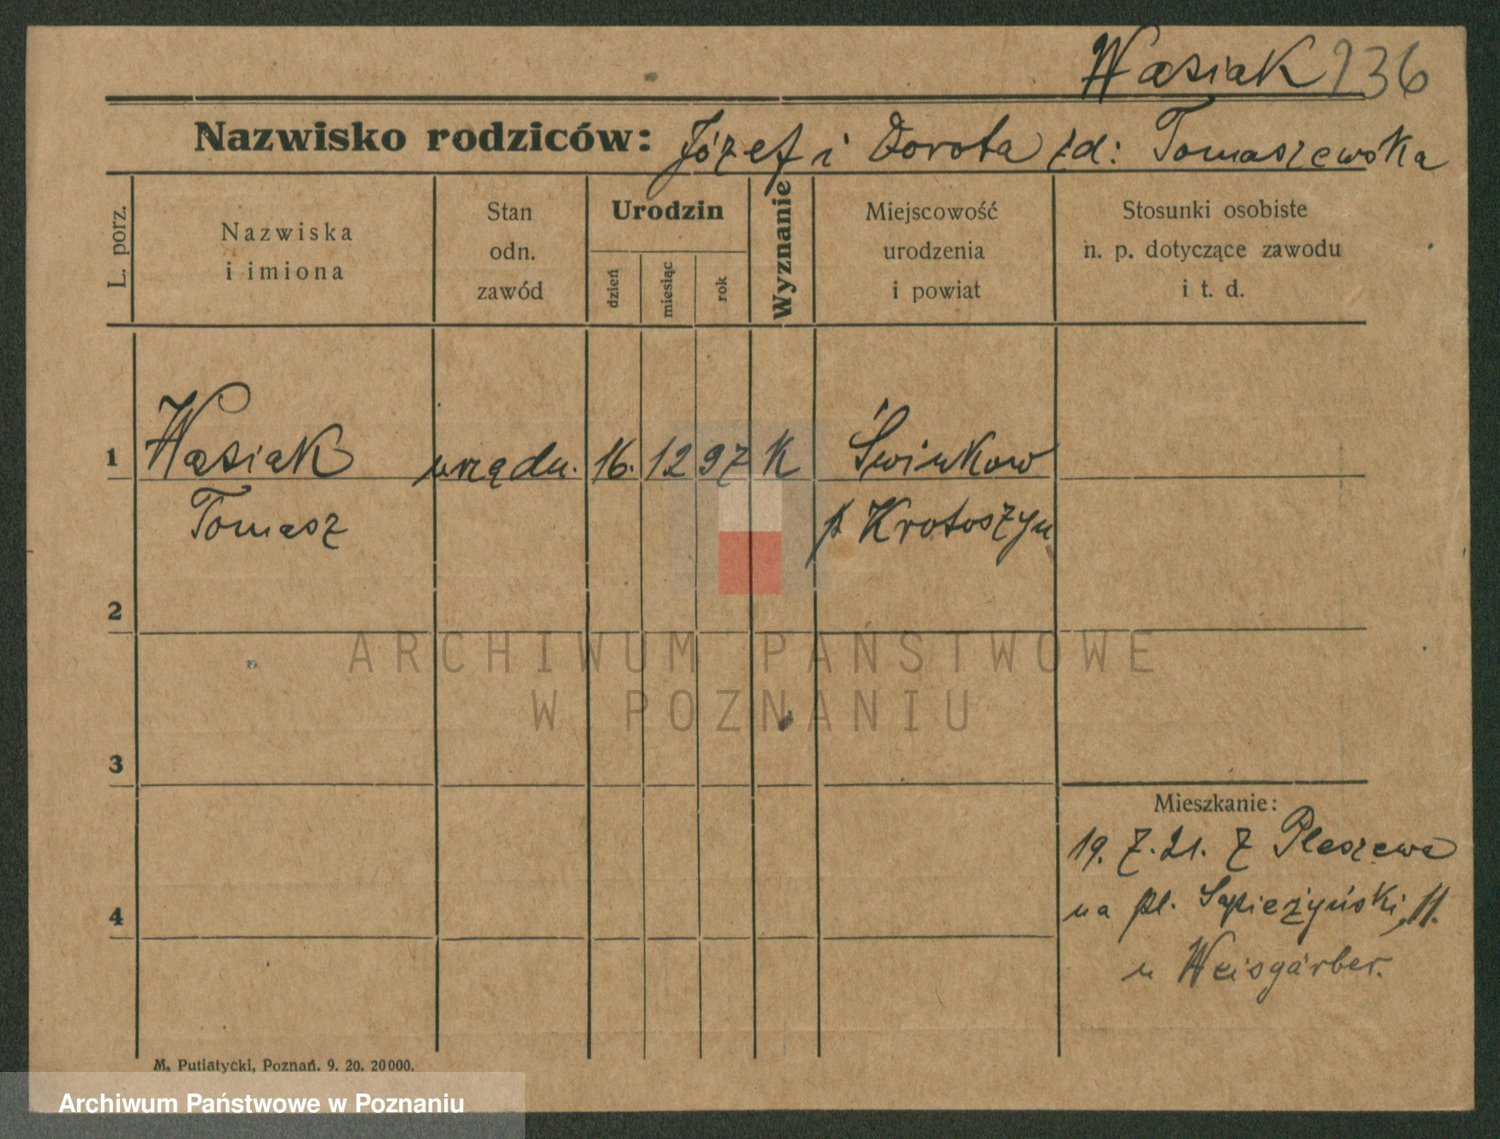 Wasiak 936
Nazwisko rodziców: Józef i Dorota zd: Tomaszewska
L. porz.
Nazwiska
i imiona
Stan
odn.
zawód
Urodzin
dzień
miesiąc
rok
Wyznanie
Miejscowość
urodzenia
i powiat
Stosunki osobiste
n. p. dotyczące zawodu
i t. d.
1 Wasiak urzędn. 16. 12 97 K Świnkow
Tomasz p Krotoszyn
2
ARCHIWUM PAŃSTWOWE
W POZNANIU
3
Mieszkanie:
19. 7. 21. z Pleszewa
4
na pl. Sapieżyński, 11.
u Weisgärber.
M. Putiatycki, Poznań. 9. 20. 20000.
Archiwum Państwowe w Poznaniu